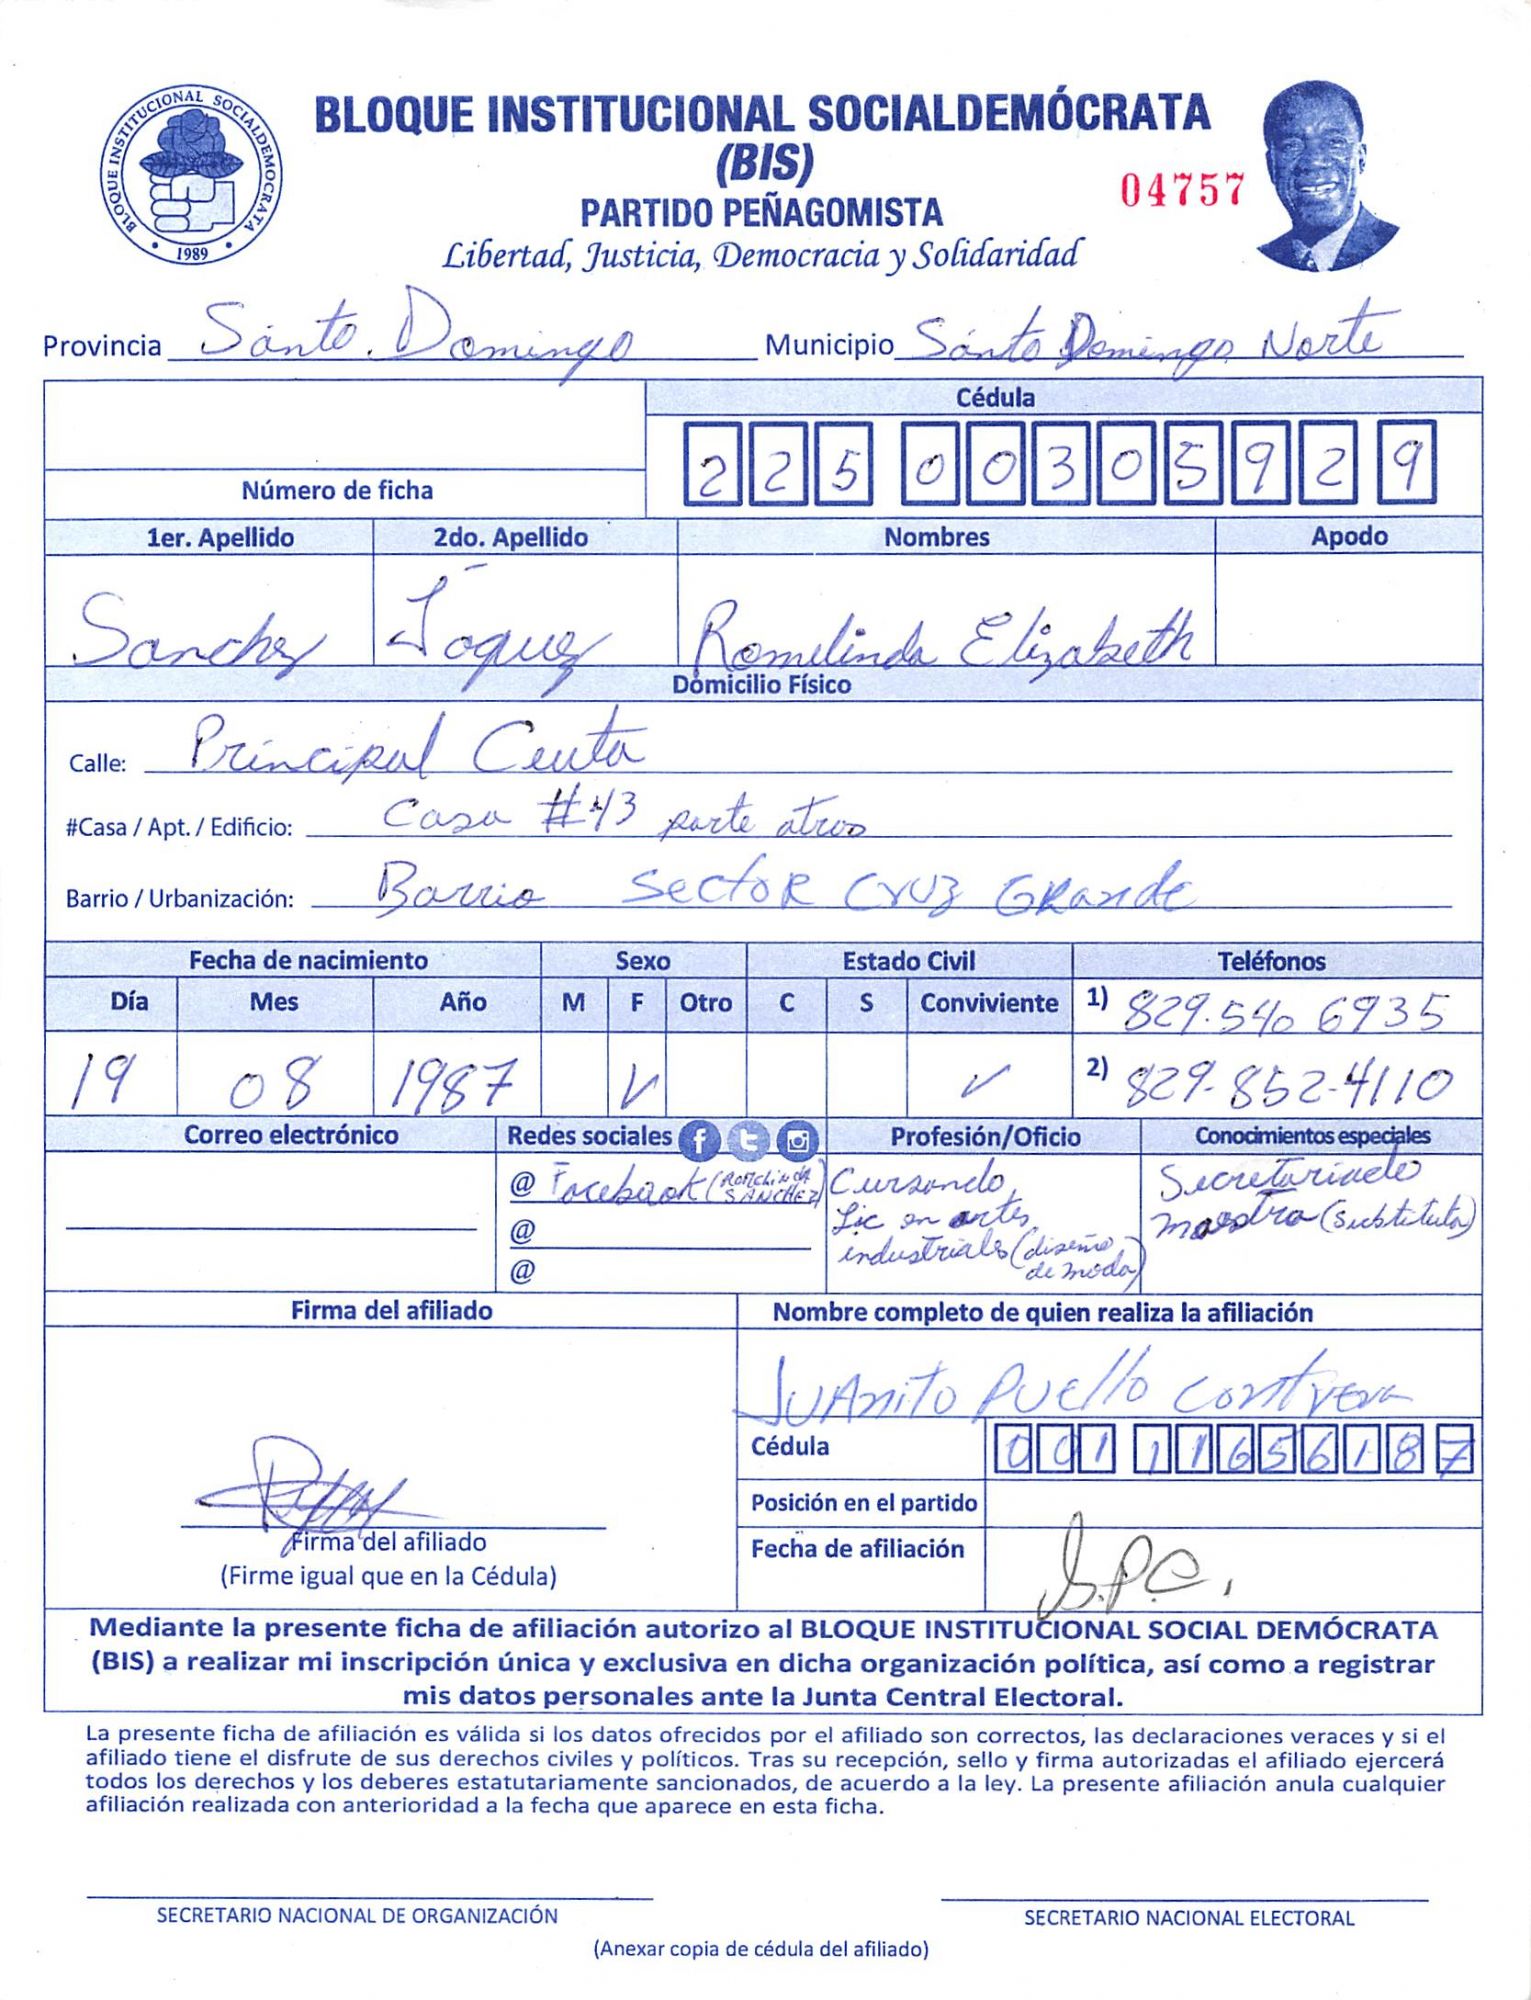 BLOQUE INSTITUCIONAL SOCIALDEMOCRATA
1989
BLOQUE INSTITUCIONAL SOCIALDEMÓCRATA
(BIS)
PARTIDO PEÑAGOMISTA
04757
Libertad, Justicia, Democracia y Solidaridad
Provincia Santo Domingo Municipio Santo Domingo Norte
Cédula
2 2 5 0 0 3 0 5 9 2 9
Número de ficha
1er. Apellido 2do. Apellido Nombres Apodo
Sanchez Romelinda Elizabeth
Domicilio Físico
Calle: Principal Ceuta
#Casa / Apt. / Edificio: Casa #43 parte atras
Barrio / Urbanización: Barrio Sector Cruz Grande
Fecha de nacimiento Sexo Estado Civil Teléfonos
Día Mes Año M F Otro C S Conviviente 1) 829.540 6935
19 08 1987 ✓ ✓ 2) 829-852-4110
Correo electrónico Redes sociales Profesión/Oficio Conocimientos especiales
@ Facebook (Romelinda Sanchez) Cursando Secretariado
@ Lic en artes maestra (substituta)
@ industriales (diseño de moda)
Firma del afiliado Nombre completo de quien realiza la afiliación
Juanito Puello Contrera
Cédula 0 0 1 1 1 6 5 6 1 8 7
Posición en el partido
Firma del afiliado Fecha de afiliación J.P.C.
(Firme igual que en la Cédula)
Mediante la presente ficha de afiliación autorizo al BLOQUE INSTITUCIONAL SOCIAL DEMÓCRATA
(BIS) a realizar mi inscripción única y exclusiva en dicha organización política, así como a registrar
mis datos personales ante la Junta Central Electoral.
La presente ficha de afiliación es válida si los datos ofrecidos por el afiliado son correctos, las declaraciones veraces y si el
afiliado tiene el disfrute de sus derechos civiles y políticos. Tras su recepción, sello y firma autorizadas el afiliado ejercerá
todos los derechos y los deberes estatutariamente sancionados, de acuerdo a la ley. La presente afiliación anula cualquier
afiliación realizada con anterioridad a la fecha que aparece en esta ficha.
SECRETARIO NACIONAL DE ORGANIZACIÓN SECRETARIO NACIONAL ELECTORAL
(Anexar copia de cédula del afiliado)